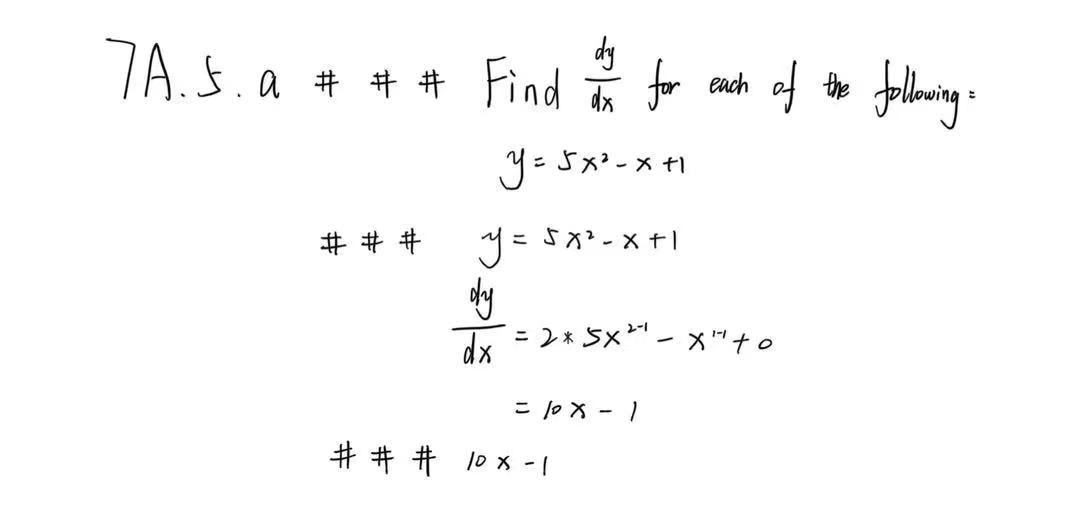 7A.5.a # # # Find dy/dx for each of the following:
y = 5x² - x + 1
# # # y = 5x² - x + 1
dy/dx = 2 * 5x²⁻¹ - x¹⁻¹ + 0
= 10x - 1
# # # 10x - 1